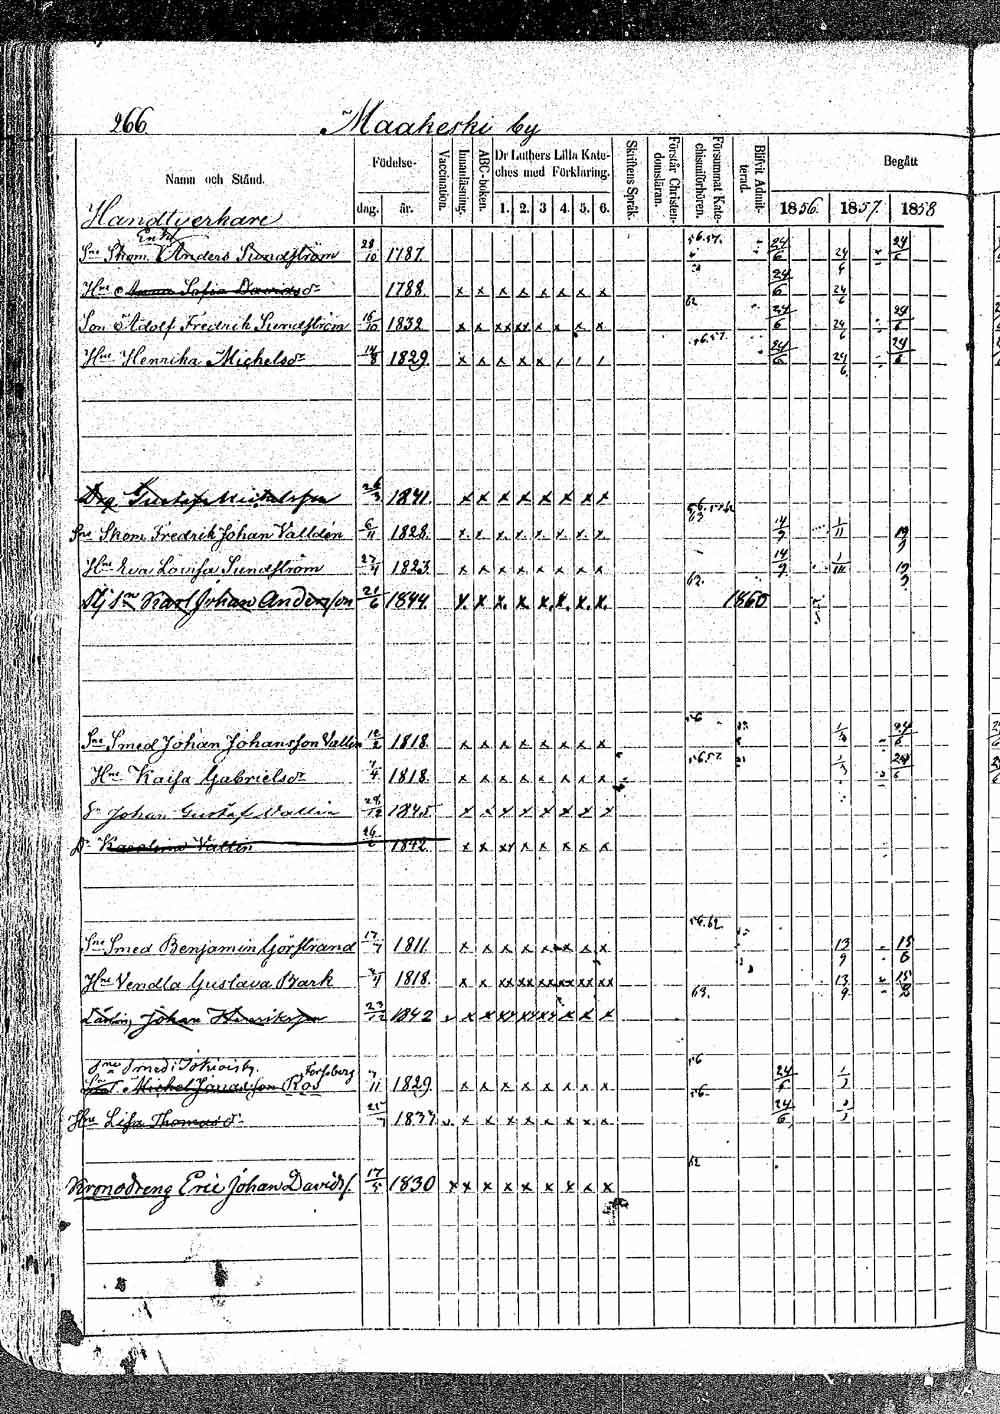 266 Maakeski by
Namn och Stånd. Födelse- dag. år. Vaccination. Innanläsning. ABC-boken. Dr Luthers Lilla Kateches med Förklaring. 1. 2. 3 4. 5. 6. Skriftens Språk. Förstår Christendomsläran. Försummat Katechismiförhören. Blifvit Admitterad. Begått 1856. 1857. 1858
Handtverkare
Enkl
Sne Skom. Anders Sundström 28/10 1787. 56.57. 24/6 24/6 24/6
Hne Anna Sofia Davidsdr 1788. x x x x x x x x 24/6 24/6
Son Adolf Fredrik Sundström 16/10 1832 x x xx xx x x x x 62 24/6 24/6 24/6
Hne Henrika Michelsdr 14/8 1829. x x x x x / / / 56.57. 24/6 24/6 24/6
Drg Gustaf Michelsson 26/3 1841. x x x x x x x x
Sne Skom. Fredrik Johan Valldén 6/11 1828. x x x x x x x x 63 14/9 1/11 19/9
Hne Eva Lovisa Sundström 27/4 1823. x x x x x x x x 14/9 1/11 19/9
Karl Johan Andersson 21/6 1844. x x x x x x x x 62. 1860
Sne Smed Johan Johansson Vallin 12/2 1818. x x x x x x x x 56 24/6
Hne Kaisa Gabrielsdr 7/4 1818. x x x x x x x x 56.57. 24/6
Sn Johan Gustaf Vallin 29/12 1845 x x x x x x x x
Dr Karolina Vallin 26/6 1842 x x xx x x x x x
Sne Smed Benjamin Görstrand 17/7 1811. x x x x x x x x 56.62 13/9 15/6
Hne Vendla Gustava Bark 1818. x x xx xx xx xx xx xx 13/9
Johan Henriksson 23/12 1842 63.
Forssberg
Michel Jonasson Ros 7/11 1829. x x x x x x x x 56 24/6
Hne Lisa Thomasdr 1837 x x x x x x x x 56 24/6
Kronodreng Eric Johan Davids. 17/5 1830 x x x x x x x x x 62